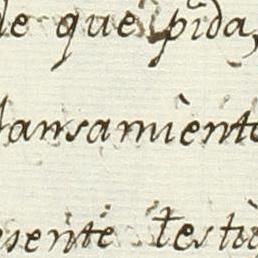 de que pida,
lansamiento
esente testig